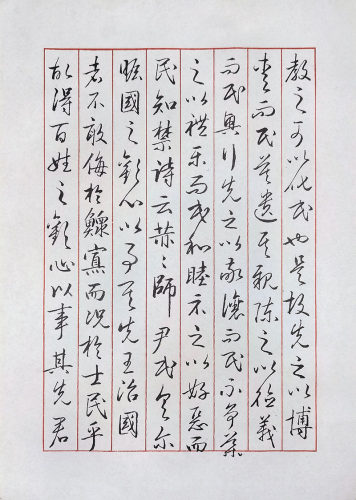 教之可以化民也是故先之以博
愛而民莫遺其親陳之以德義
而民興行先之以敬讓而民不爭導
之以禮樂而民和睦示之以好惡而
民知禁詩云赫々師尹民具爾
瞻國之歡心以事其先王治國
者不敢侮於鰥寡而況於士民乎
故得百姓之歡心以事其先君